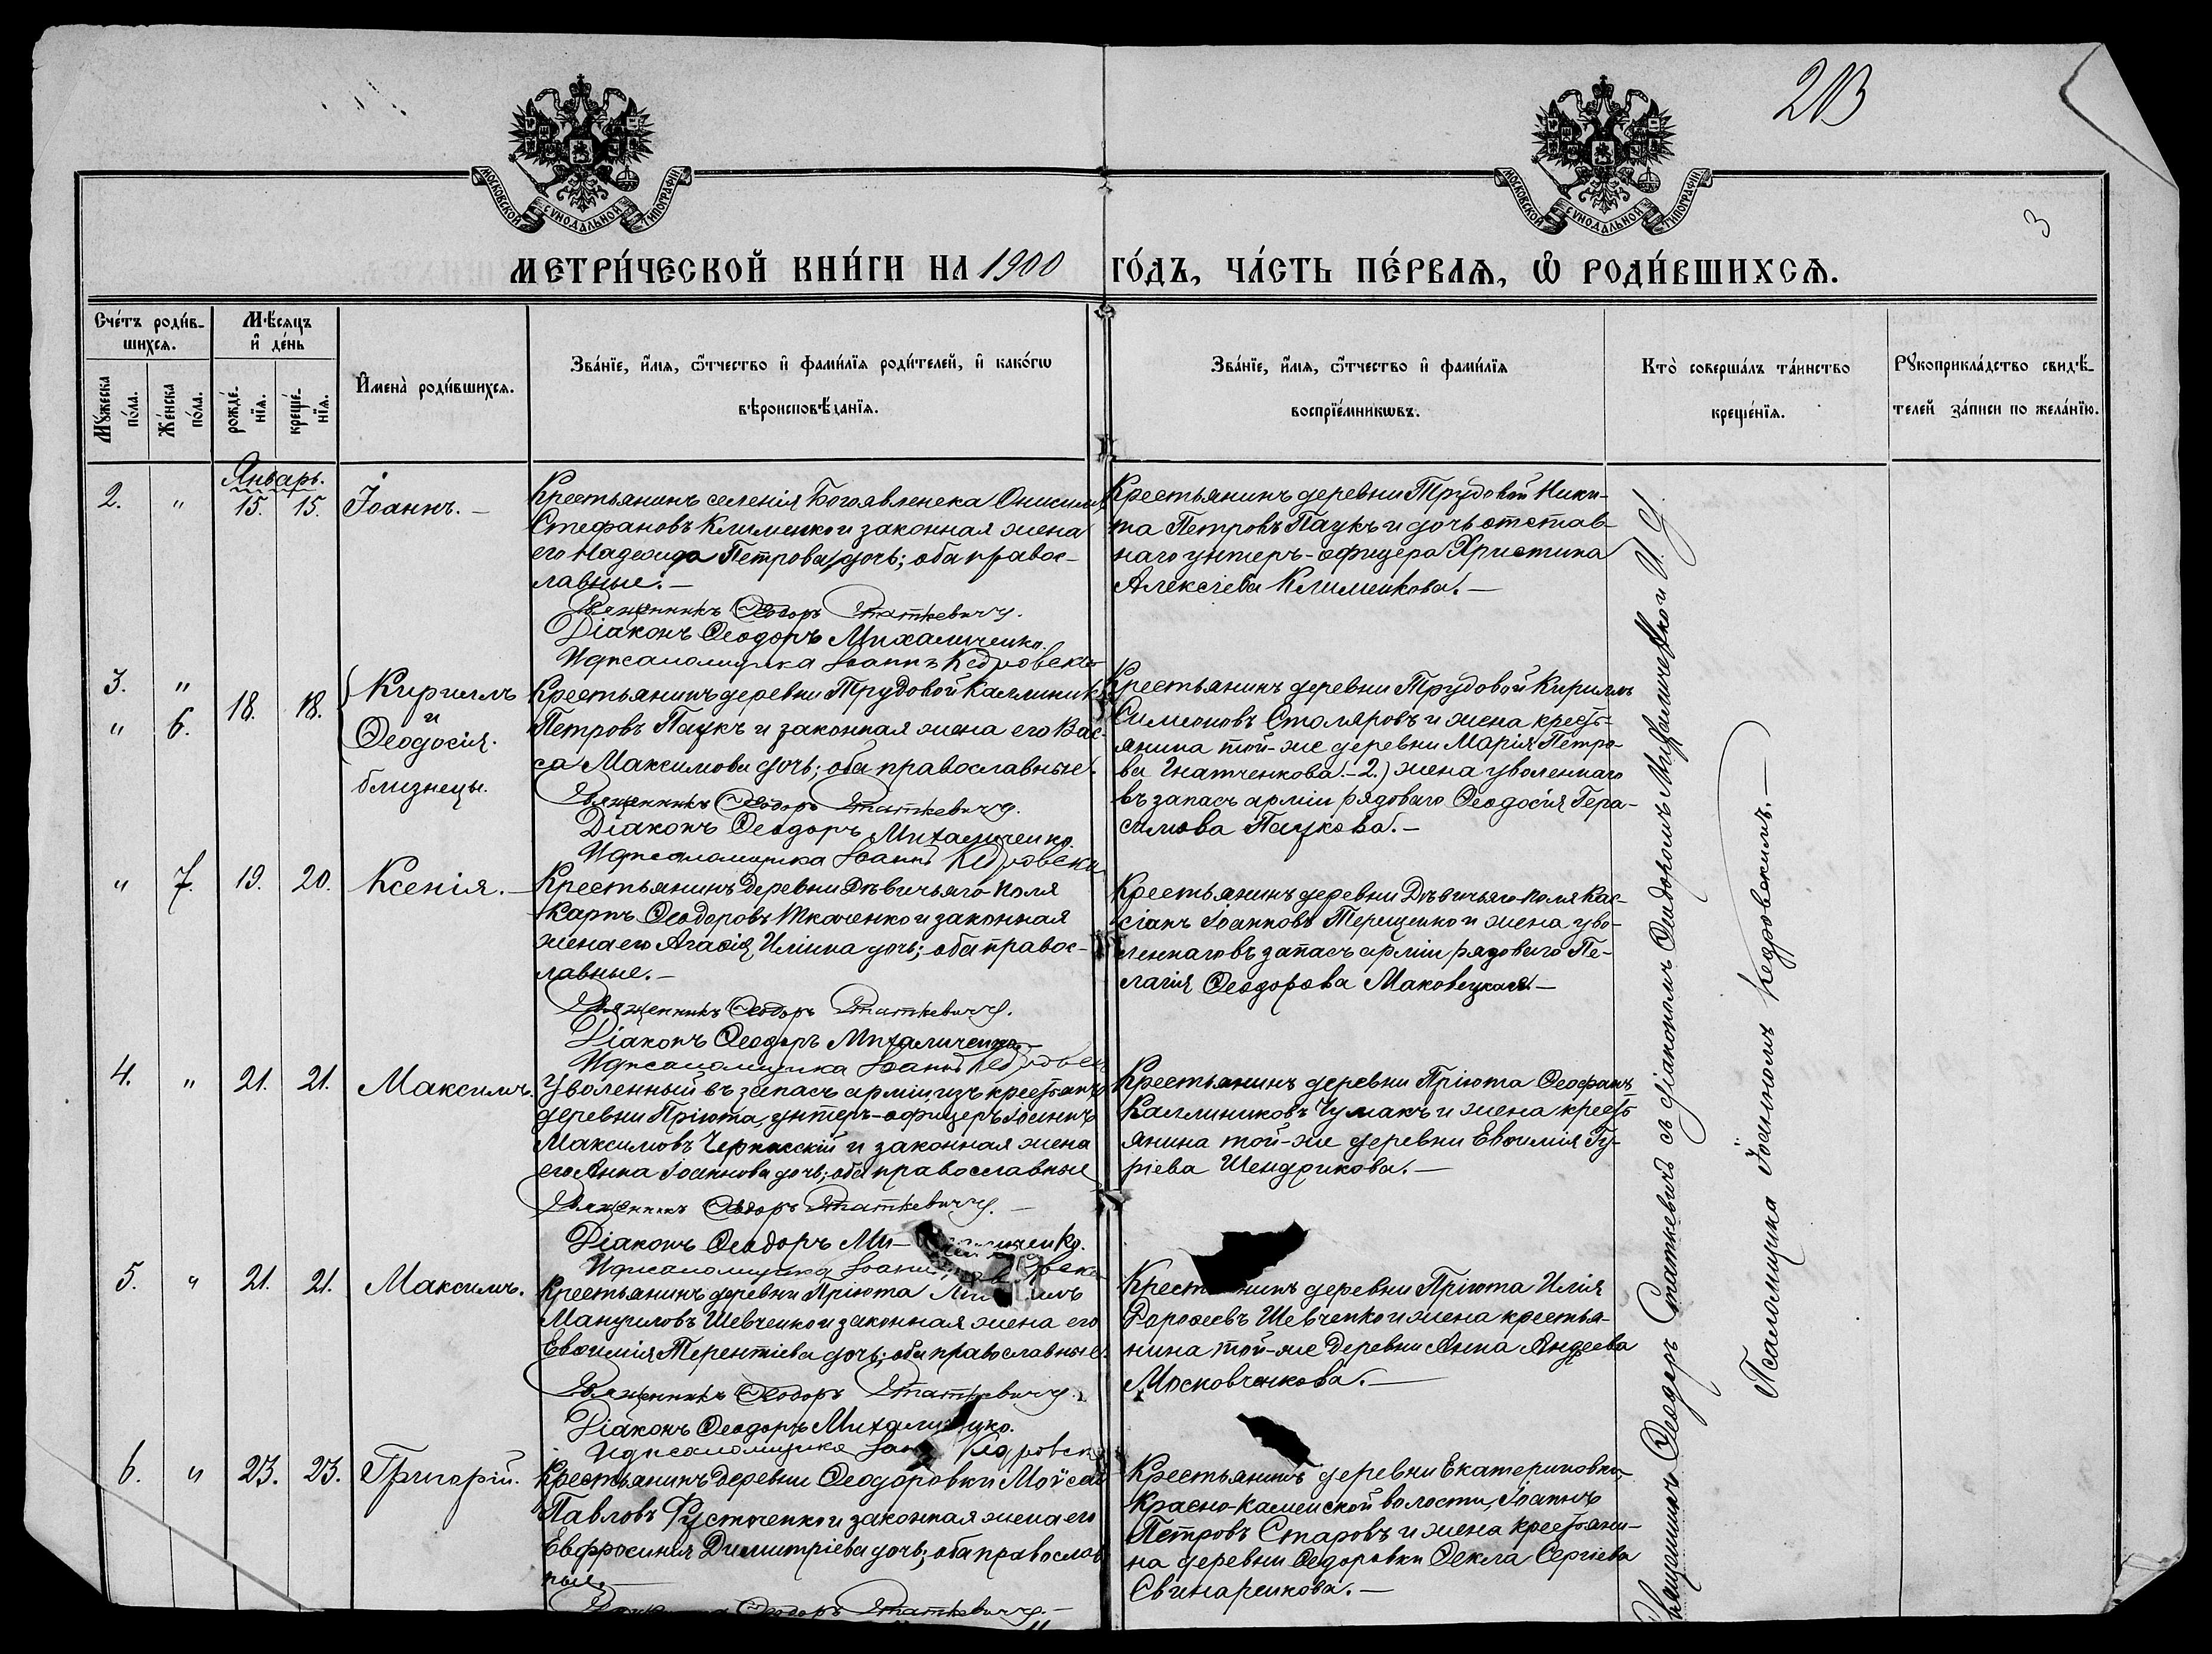 203
3
МОСКОВСКОЙ СУНОДАЛЬНОЙ ТИПОГРАФІИ
МОСКОВСКОЙ СУНОДАЛЬНОЙ ТИПОГРАФІИ
МЕТРИ́ЧЕСКОЙ КНИ́ГИ НА 1900 ГО́ДЪ, ЧА́СТЬ ПЕ́РВАѦ, Ѡ҆ РОДИ́ВШИХСѦ.
Сче́тъ роди́в-
шихсѧ.
Мꙋ́жеска
по́ла.
Же́нска
по́ла.
Мѣ́сѧцъ
и҆ де́нь
рожде́-
нїѧ.
креще́-
нїѧ.
И҆мена̀ роди́вшихсѧ.
Зва́нїе, и҆́мѧ, ѻ҆́тчество и҆ фами́лїѧ роди́телей, и҆ како́гѡ
вѣроисповѣ́данїѧ.
Зва́нїе, и҆́мѧ, ѻ҆́тчество и҆ фами́лїѧ
воспрїе́мникѡвъ.
Кто̀ соверша́лъ та́инство
креще́нїѧ.
Рꙋкоприкла́дство свидѣ́-
телей за́писи по жела́нїю.
Январь.
2. " 15. 15. Іоаннъ.
Крестьянинъ селенія Богоявленска Онисимъ
Стефановъ Клименко и законная жена
его Надежда Петрова дочь; оба правос-
лавные.
Священникъ Ѳеодоръ Статкевичъ.
Діаконъ Ѳеодоръ Михаличенко.
И д псаломщика Іоаннъ Кедровскій
Крестьянинъ деревни Трудовой Ники-
та Петровъ Паукъ и дочь отстав-
наго унтеръ-офицера Христина
Алексіева Клименкова.
3. "
" 6.
18. 18.
Кириллъ
и
Ѳеодосія.
близнецы.
Крестьянинъ деревни Трудовой Каллиникъ
Петровъ Паукъ и законная жена его Вас-
са Максимова дочь; оба православные.
Священникъ Ѳеодоръ Статкевичъ.
Діаконъ Ѳеодоръ Михаличенко.
И д псаломщика Іоаннъ Кедровскій
Крестьянинъ деревни Трудовой Кириллъ
Симеоновъ Столяровъ и жена кресть-
янина той-же деревни Марія Петро-
ва Игнатченкова.-2.) жена уволеннаго
въ запасъ арміи рядоваго Ѳеодосія Гера-
симова Паукова.
" 7. 19. 20. Ксенія.
Крестьянинъ деревни Дѣвичьяго-поля
Карпъ Ѳеодоровъ Ткаченко и законная
жена его Агаѳія Иліина дочь; оба правос-
лавные.
Священникъ Ѳеодоръ Статкевичъ.
Діаконъ Ѳеодоръ Михаличенко
И д псаломщика Іоаннъ Кедровскій
Крестьянинъ деревни Дѣвичьяго-поля Кас-
сіанъ Іоанновъ Терещенко и жена уво-
леннаго въ запасъ арміи рядоваго Пе-
лагія Ѳеодорова Маковецкая.
4. " 21. 21. Максимъ.
Уволенный въ запасъ арміи, изъ крестьянъ
деревни Пріюта, унтеръ-офицеръ Іоаннъ
Максимовъ Черкасскій и законная жена
его Анна Іоаннова дочь; оба православные
Священникъ Ѳеодоръ Статкевичъ.
Діаконъ Ѳеодоръ Ми- ченко.
И д псаломщика Іоаннъ
Крестьянинъ деревни Пріюта Ѳеофанъ
Каллиниковъ Чумакъ и жена кресть-
янина той-же деревни Евѳимія Гу-
ріева Шендрикова.
5. " 21. 21. Максимъ.
Крестьянинъ деревни Пріюта
Мануиловъ Шевченко и законная жена его
Евѳимія Терентіева дочь; оба православные.
Священникъ Ѳеодоръ Статкевичъ.
Діаконъ Ѳеодоръ Михаличенко.
И д псаломщика Кедровскій
Крестьянинъ деревни Пріюта Илія
Дороѳеевъ Шевченко и жена крестья-
нина той-же деревни Анна Андреева
Московченкова.
6. " 23. 23. Григорій.
Крестьянинъ деревни Ѳеодоровки Моѵсей
Павловъ и законная жена его
Евфросинія Димитріева дочь; оба православ
ные.
Ѳеодоръ Статкевичъ.
Крестьянинъ деревни Екатериновки,
Красно-Каменской волости, Іоаннъ
Петровъ Старовъ и жена крестьяни-
на деревни Ѳедоровки Ѳекла Сергіева
Свинаренкова.
Священникъ Ѳеодоръ Статкевичъ съ діакономъ Ѳеодоромъ Михаличенко и И. д.
Псаломщика Іоанномъ Кедровскимъ.